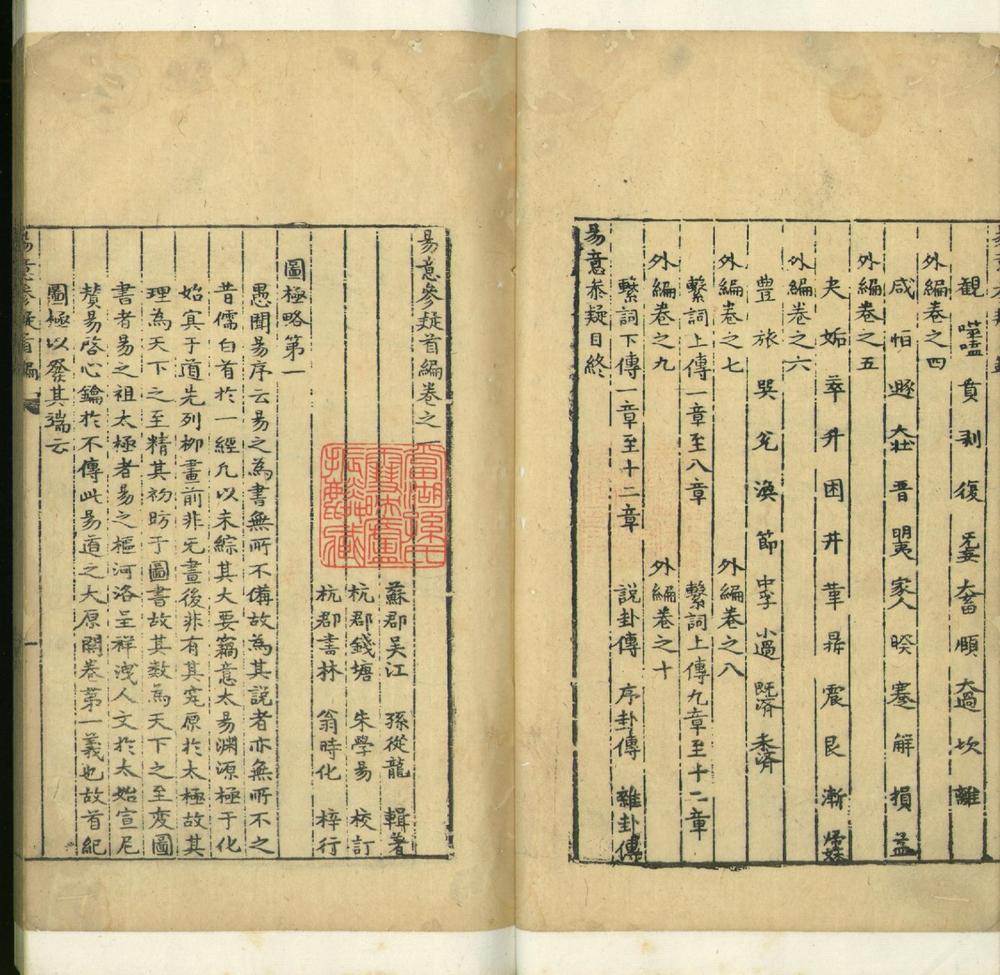 觀 噬嗑 賁 剥 復 无妄 大畜 頤 大過 坎 離
外編卷之四
咸 恒 遯 大壯 晋 明夷 家人 睽 蹇 解 損 益
外編卷之五
夬 姤 萃 升 困 井 革 鼎 震 艮 漸 歸妹
外編卷之六
豊 旅 巽 兌 渙 節 中孚 小過 既濟 未濟
外編卷之七 外編卷之八
繫詞上傳一章至八章 繫詞上傳九章至十二章
外編卷之九 外編卷之十
繫詞下傳一章至十二章 説卦傳 序卦傳 雜卦傳
易意叅疑目終
易意參疑首編卷之一
蘇郡吴江 孫從龍 輯著
杭郡錢塘 朱學易 校訂
杭郡書林 翁時化 梓行
圖極略第一
愚聞易序云易之為書無所不備故為其説者亦無所不之
昔儒白首於一經凢以未綜其大要竊意太易淵源極于化
始寘于道先列柳畫前非无畫後非有其究原於太極故其
理為天下之至精其初昉于圖書故其数爲天下之至変圖
書者易之祖太極者易之樞河洛呈祥洩人文於太始宣尼
賛易啓心鑰於不傳此易道之大原開卷第一義也故首紀
圖極以發其端云
易意參疑首編
一